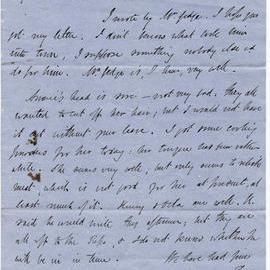 I wrote by Mr. Fedge. I hope you
got my letter. I don't know what took him
into town, I suppose something nobody else could
do for him. Mr. Fedge is, I hear, very well.
Annie's head is sore - not very bad. They all
wanted to cut off her hair; but I would not have
it without your leave. I got some cooling
powders for her today; her tongue has been rather
white. She seems very well, but only seems to relish
meat, which is not good for her at present, at
least much of it. Henry & are well. He
said he would write this afternoon; but they are
all off to the & I do not know whether he
will be in in time.
We have had